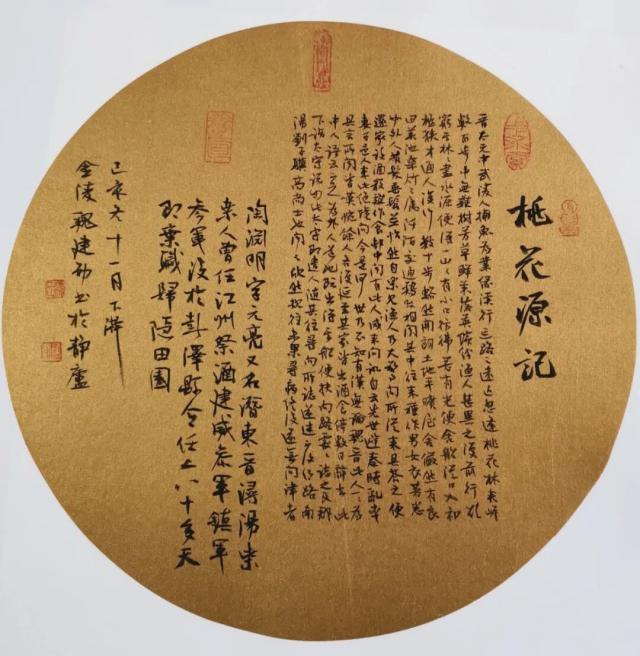 桃花源記
晉太元中武陵人捕魚為業緣溪行忘路之遠近忽逢桃花林夾岸
數百步中無雜樹芳草鮮美落英繽紛漁人甚異之復前行欲
窮其林林盡水源便得一山山有小口彷彿若有光便舍船從口入初
極狹才通人復行數十步豁然開朗土地平曠屋舍儼然有良
田美池桑竹之屬阡陌交通雞犬相聞其中往來種作男女衣著悉
如外人黃髮垂髫並怡然自樂見漁人乃大驚問所從來具答之便
還家設酒殺雞作食村中聞有此人咸來問訊自云先世避秦時亂率
妻子邑人來此絕境問今是何世乃不知有漢無論魏晉此人一一為
具言所聞皆嘆惋餘人各復延至其家皆出酒食停數日辭去此
中人語云不足為外人道也既出得其船便扶向路處處誌之及郡
下詣太守說如此太守即遣人隨其往尋向所誌遂迷不復得路南
陽劉子驥高尚士也聞之欣然規往未果尋病終後遂無問津者
陶淵明字元亮又名潛東晉潯陽柴
桑人曾任江州祭酒建威參軍鎮軍
參軍後於彭澤縣令任上八十多天
即棄職歸隱田園
己亥冬十一月下澣
金陵魏建書於靜廬